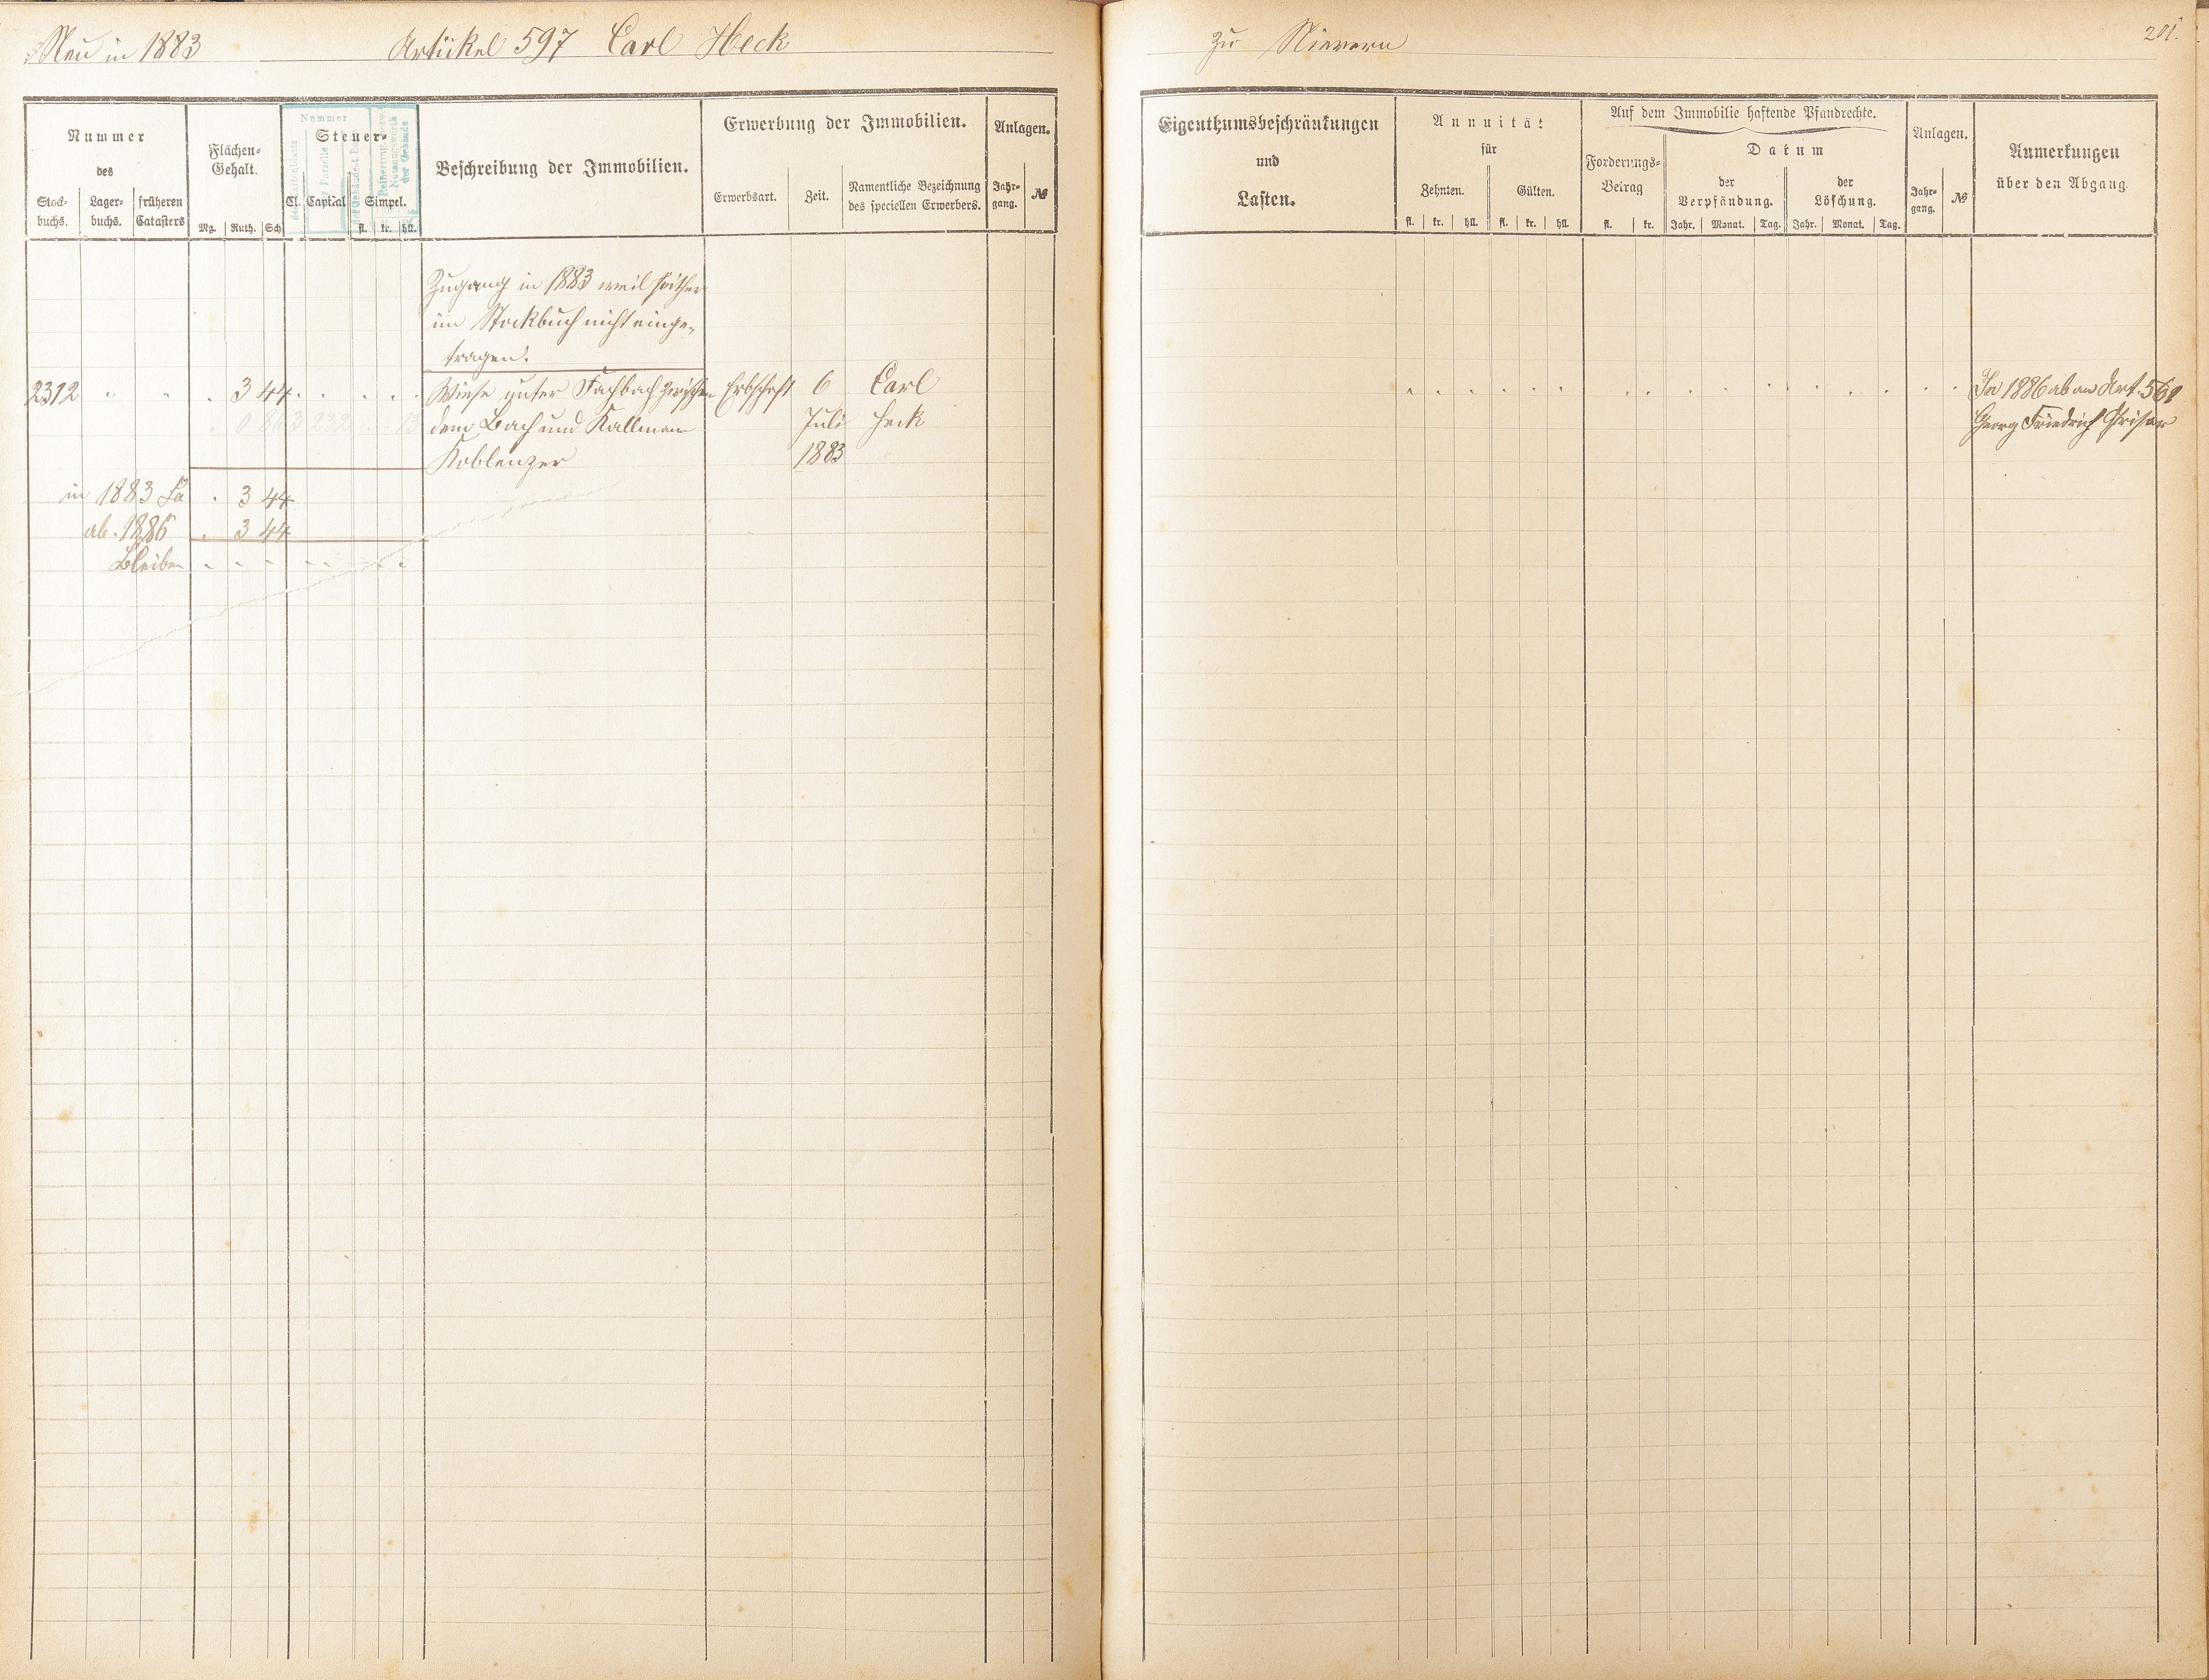 Neu in 1883 Artikel 597 Carl Heck
zu Nievern 201.
Nummer
des
Stock-
buchs.
Lager-
buchs.
früheren
Catasters
Flächen-
Gehalt.
Mg. Ruth. Sch
Nummer
Steuer-
Cl. Capital Simpel.
fl. kr. hll.
Beschreibung der Immobilien.
Erwerbung der Immobilien.
Erwerbsart. Zeit.
Namentliche Bezeichnung
des speciellen Erwerbers.
Anlagen.
Jahr-
gang.
№
Eigenthumsbeschränkungen
und
Lasten.
Annuität
für
Zehnten. Gülten.
fl. kr. hll. fl. kr. hll.
Auf dem Immobilie haftende Pfandrechte.
Forderungs-
Betrag
fl. kr.
Datum
der
Verpfändung.
der
Löschung.
Jahr. Monat. Tag. Jahr. Monat. Tag.
Anlagen.
Jahr-
gang.
№
Anmerkungen
über den Abgang.
Zugang in 1883 weil seither
im Stockbuch nicht einge-
tragen.
2312 " " . 3 44 . . . . . Wiese unter Fachbach zwischen Erbschaft 6 Carl
dem Bach und Kallmann Juli Heck
Koblenzer 1883
In 1886 ab an Art. 561
Georg Friedrich
in 1883 Sa . 3 44
ab. 1886 . 3 44
Bleiben